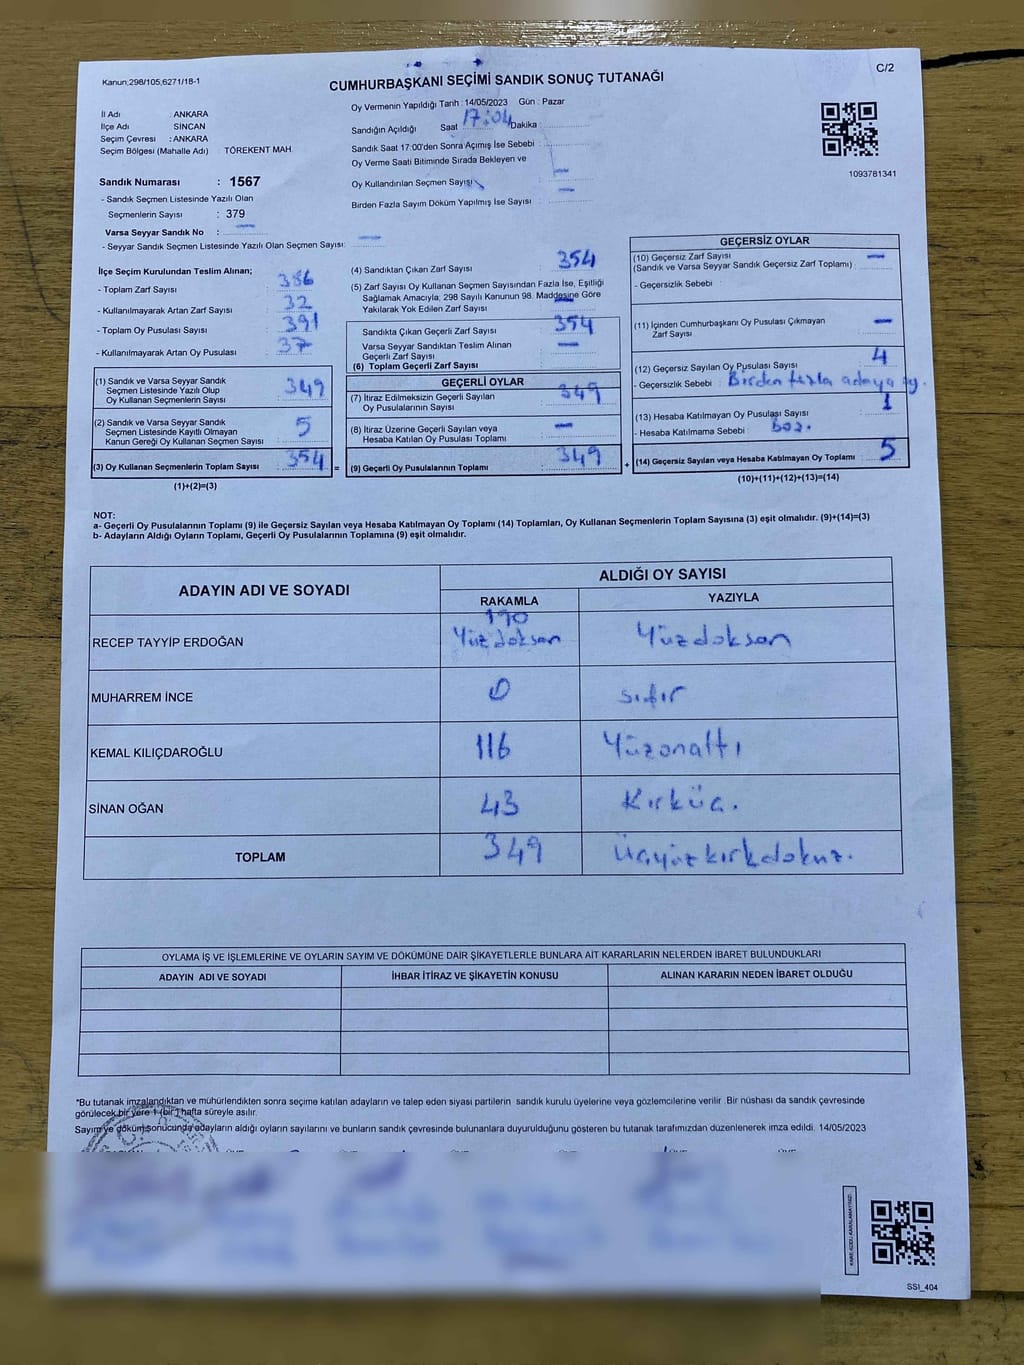 Kanun,298/105,6271/18-1
C/2
CUMHURBAŞKANI SEÇİMİ SANDIK SONUÇ TUTANAĞI
İl Adı : ANKARA
İlçe Adı SİNCAN
Seçim Çevresi : ANKARA
Seçim Bölgesi (Mahalle Adı) TÖREKENT MAH.
Sandık Numarası : 1567
- Sandık Seçmen Listesinde Yazılı Olan
Seçmenlerin Sayısı : 379
Varsa Seyyar Sandık No : —
- Seyyar Sandık Seçmen Listesinde Yazılı Olan Seçmen Sayısı: —
Oy Vermenin Yapıldığı Tarih : 14/05/2023 Gün : Pazar
Sandığın Açıldığı Saat 17:04 Dakika :
Sandık Saat 17:00'den Sonra Açımış İse Sebebi :
Oy Verme Saati Bitiminde Sırada Bekleyen ve
Oy Kullandırılan Seçmen Sayısı —
Birden Fazla Sayım Döküm Yapılmış İse Sayısı : —
1093781341
İlçe Seçim Kurulundan Teslim Alınan;
- Toplam Zarf Sayısı : 386
- Kullanılmayarak Artan Zarf Sayısı : 32
- Toplam Oy Pusulası Sayısı : 391
- Kullanılmayarak Artan Oy Pusulası : 37
(1) Sandık ve Varsa Seyyar Sandık
Seçmen Listesinde Yazılı Olup
Oy Kullanan Seçmenlerin Sayısı : 349
(2) Sandık ve Varsa Seyyar Sandık
Seçmen Listesinde Kayıtlı Olmayan
Kanun Gereği Oy Kullanan Seçmen Sayısı : 5
(3) Oy Kullanan Seçmenlerin Toplam Sayısı : 354 =
(1)+(2)=(3)
(4) Sandıktan Çıkan Zarf Sayısı : 354
(5) Zarf Sayısı Oy Kullanan Seçmen Sayısından Fazla İse, Eşitliği
Sağlamak Amacıyla; 298 Sayılı Kanunun 98. Maddesine Göre
Yakılarak Yok Edilen Zarf Sayısı : —
Sandıkta Çıkan Geçerli Zarf Sayısı : 354
Varsa Seyyar Sandıktan Teslim Alınan
Geçerli Zarf Sayısı : —
(6) Toplam Geçerli Zarf Sayısı :
GEÇERLİ OYLAR
(7) İtiraz Edilmeksizin Geçerli Sayılan
Oy Pusulalarının Sayısı : 349
(8) İtiraz Üzerine Geçerli Sayılan veya
Hesaba Katılan Oy Pusulası Toplamı : —
(9) Geçerli Oy Pusulalarının Toplamı : 349 +
GEÇERSİZ OYLAR
(10) Geçersiz Zarf Sayısı
(Sandık ve Varsa Seyyar Sandık Geçersiz Zarf Toplamı) : —
- Geçersizlik Sebebi :
(11) İçinden Cumhurbaşkanı Oy Pusulası Çıkmayan
Zarf Sayısı : —
(12) Geçersiz Sayılan Oy Pusulası Sayısı : 4
- Geçersizlik Sebebi : Birden fazla adaya oy.
(13) Hesaba Katılmayan Oy Pusulası Sayısı : 1
- Hesaba Katılmama Sebebi : Boş.
(14) Geçersiz Sayılan veya Hesaba Katılmayan Oy Toplamı : 5
(10)+(11)+(12)+(13)=(14)
NOT:
a- Geçerli Oy Pusulalarının Toplamı (9) ile Geçersiz Sayılan veya Hesaba Katılmayan Oy Toplamı (14) Toplamları, Oy Kullanan Seçmenlerin Toplam Sayısına (3) eşit olmalıdır. (9)+(14)=(3)
b- Adayların Aldığı Oyların Toplamı, Geçerli Oy Pusulalarının Toplamına (9) eşit olmalıdır.
ADAYIN ADI VE SOYADI ALDIĞI OY SAYISI
RAKAMLA YAZIYLA
190
RECEP TAYYİP ERDOĞAN Yüzdoksan Yüzdoksan
MUHARREM İNCE 0 sıfır
KEMAL KILIÇDAROĞLU 116 Yüzonaltı
SİNAN OĞAN 43 Kırküç.
TOPLAM 349 Üçyüzkırkdokuz.
OYLAMA İŞ VE İŞLEMLERİNE VE OYLARIN SAYIM VE DÖKÜMÜNE DAİR ŞİKAYETLERLE BUNLARA AİT KARARLARIN NELERDEN İBARET BULUNDUKLARI
ADAYIN ADI VE SOYADI İHBAR İTİRAZ VE ŞİKAYETİN KONUSU ALINAN KARARIN NEDEN İBARET OLDUĞU
*Bu tutanak imzalandıktan ve mühürlendikten sonra seçime katılan adayların ve talep eden siyasi partilerin sandık kurulu üyelerine veya gözlemcilerine verilir. Bir nüshası da sandık çevresinde
görülecek bir yere 1 (bir) hafta süreyle asılır.
Sayım ve döküm sonucunda adayların aldığı oyların sayılarını ve bunların sandık çevresinde bulunanlara duyurulduğunu gösteren bu tutanak tarafımızdan düzenlenerek imza edildi. 14/05/2023
SSI_404